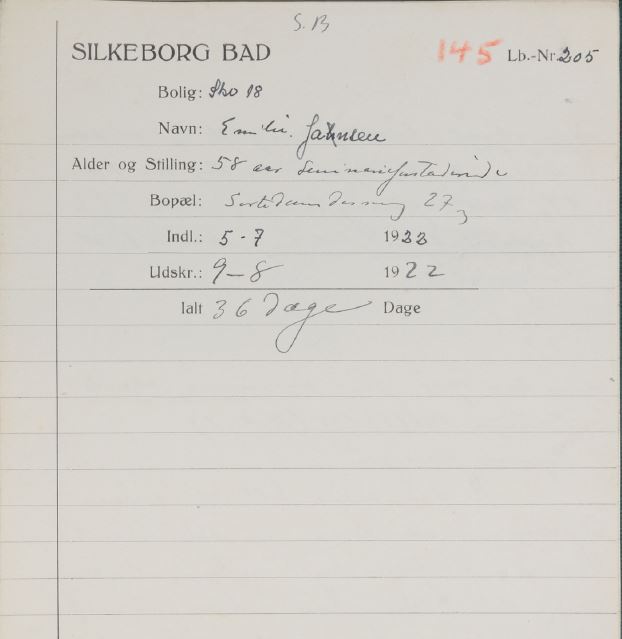 S.B
SILKEBORG BAD 145 Lb.-Nr. 205
Bolig: Sko 18
Navn: Emilie. Jahnsen
Alder og Stilling: 58 aar
Bopæl: Sortedamsdossering 27
Indl.: 5-7 1922
Udskr.: 9-8 1922
Ialt 36 Dage Dage